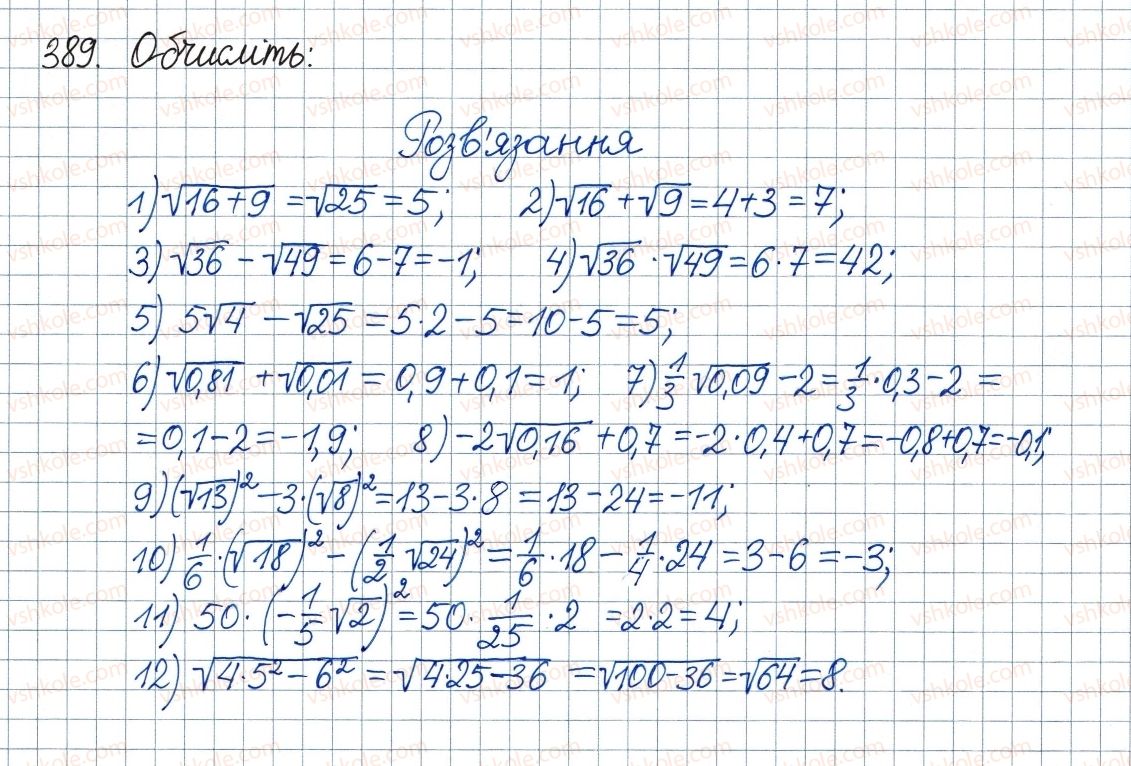 389. Обчисліть:
Розв'язання
1) √(16+9) = √25 = 5; 2) √16 + √9 = 4+3 = 7;
3) √36 − √49 = 6−7 = −1; 4) √36 · √49 = 6·7 = 42;
5) 5√4 − √25 = 5·2−5 = 10−5 = 5;
6) √0,81 + √0,01 = 0,9+0,1 = 1; 7) 1/3 √0,09 − 2 = 1/3 · 0,3 − 2 =
= 0,1−2 = −1,9; 8) −2√0,16 + 0,7 = −2·0,4+0,7 = −0,8+0,7 = −0,1;
9) (√13)² − 3·(√8)² = 13−3·8 = 13−24 = −11;
10) 1/6 · (√18)² − (1/2 √24)² = 1/6 · 18 − 1/4 · 24 = 3−6 = −3;
11) 50 · (−1/5 √2)² = 50 · 1/25 · 2 = 2·2 = 4;
12) √(4·5²−6²) = √(4·25−36) = √(100−36) = √64 = 8.